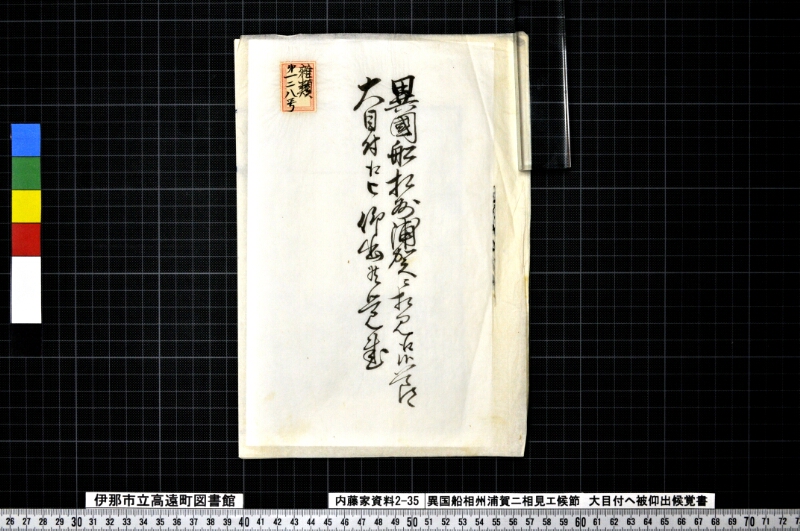 雑類
第一二八号
異國船相州浦賀ニ相見江候節
大目付江被仰出候覚書
伊那市立高遠町図書館
内藤家資料2-35
異国船相州浦賀ニ相見エ候節 大目付へ被仰出候覚書
26 27 28 29 30 31 32 33 34 35 36 37 38 39 40 41 42 43 44 45 46 47 48 49 50 51 52 53 54 55 56 57 58 59 60 61 62 63 64 65 66 67 68 69 70 71 72